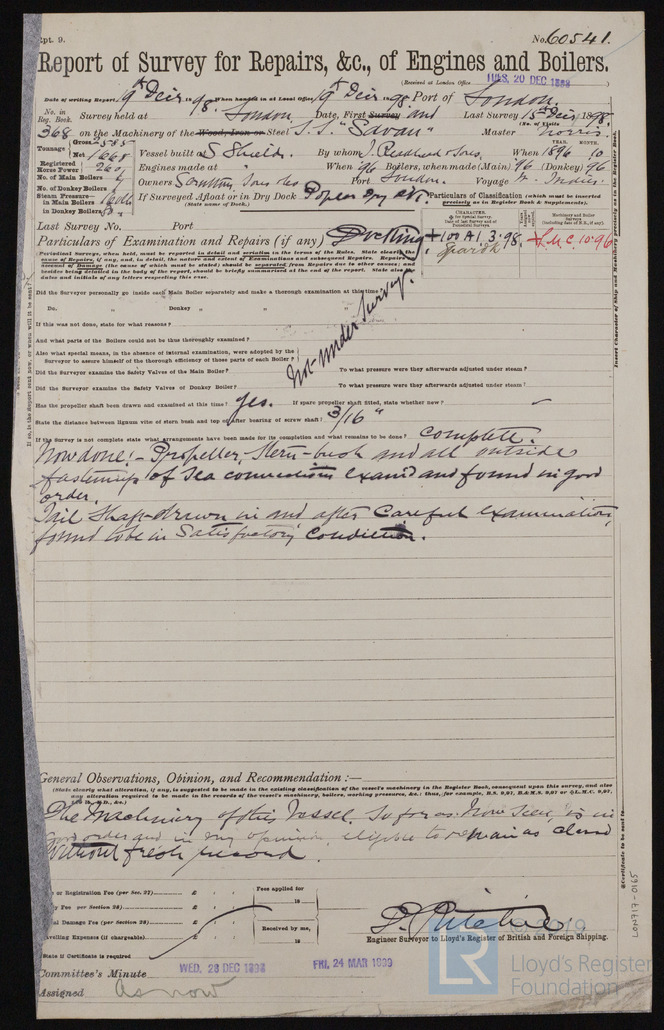 Rpt. 9.
No. 60541.
Report of Survey for Repairs, &c., of Engines and Boilers.
(Received at London Office TUES. 20 DEC 1898)
Date of writing Report, 19th Decr 1898. When handed in at Local Office 19th Decr 1898. Port of London.
No. in Reg. Book. Survey held at London Date, First Survey and Last Survey 15th Decr 1898.
(No. of Visits
368 on the Machinery of the Wood, Iron or Steel S.S. "Savan" Master Norris.
Tonnage Gross 2585
Net 1668
Vessel built at S. Shields. By whom J. Readhead & Sons. When 1896 10
YEAR. MONTH.
Registered Horse Power 260
Engines made at " When 96 Boilers, when made (Main) 96 (Donkey) 96
No. of Main Boilers 2
No. of Donkey Boilers
Owners Scrutton, Sons & Co Port London Voyage W. Indies.
Steam Pressure— in Main Boilers 160 lbs
in Donkey Boilers
If Surveyed Afloat or in Dry Dock Poplar Dry Dk.
(State name of Dock.)
Particulars of Classification (which must be inserted precisely as in Register Book & Supplements).
Last Survey No. Port
CHARACTER.
Machinery and Boiler Surveys
Particulars of Examination and Repairs (if any) Docking.
+100 A1 3.98.
Spar dk
+L.M.C. 10.96
Periodical Surveys, when held, must be reported in detail and seriatim in the terms of the Rules.
Did the Surveyor personally go inside each Main Boiler separately and make a thorough examination at this time?
Do. " Donkey " " "
If this was not done, state for what reasons?
And what parts of the Boilers could not be thus thoroughly examined?
Also what special means, in the absence of internal examination, were adopted by the
Surveyor to assure himself of the thorough efficiency of those parts of each Boiler?
Not under Survey.
Did the Surveyor examine the Safety Valves of the Main Boiler? To what pressure were they afterwards adjusted under steam?
Did the Surveyor examine the Safety Valves of Donkey Boiler? To what pressure were they afterwards adjusted under steam?
Has the propeller shaft been drawn and examined at this time? Yes. If spare propeller shaft fitted, state whether new?
State the distance between lignum vitæ of stern bush and top of after bearing of screw shaft? 3/16"
If the Survey is not complete state what arrangements have been made for its completion and what remains to be done? Complete.
Now done:- Propeller, Stern-bush and all outside
fastenings of Sea connections examd and found in good
order.
Tail Shaft drawn in and after Careful Examination,
found to be in Satisfactory Condition.
General Observations, Opinion, and Recommendation:—
(State clearly what alteration, if any, is suggested to be made in the existing classification of the vessel's machinery in the Register Book, consequent upon this survey, and also
any alteration required to be made in the records of the vessel's machinery, boilers, working pressures, &c.: thus, for example, B.S. 9,97, B.&M.S. 9,97 or L.M.C. 9,97,
The Machinery of this Vessel, So far as Now Seen, is in
Good order and in my opinion, eligible to remain as classed
without fresh record.
or Registration Fee (per Sec. 27) £
Fee (per Section 28) £
Damage Fee (per Section 28) £
Travelling Expenses (if chargeable) £
Fees applied for
18
Received by me,
18
State if Certificate is required
P. Ritchie
Engineer Surveyor to Lloyd's Register of British and Foreign Shipping.
Committee's Minute WED. 28 DEC 1898 FRI. 24 MAR 1899
Assigned As now
Insert Character of Ship and Machinery precisely as in the Register Book.
Certificate to be sent to
LON717-0165
© 2019
LR
Lloyd's Register
Foundation